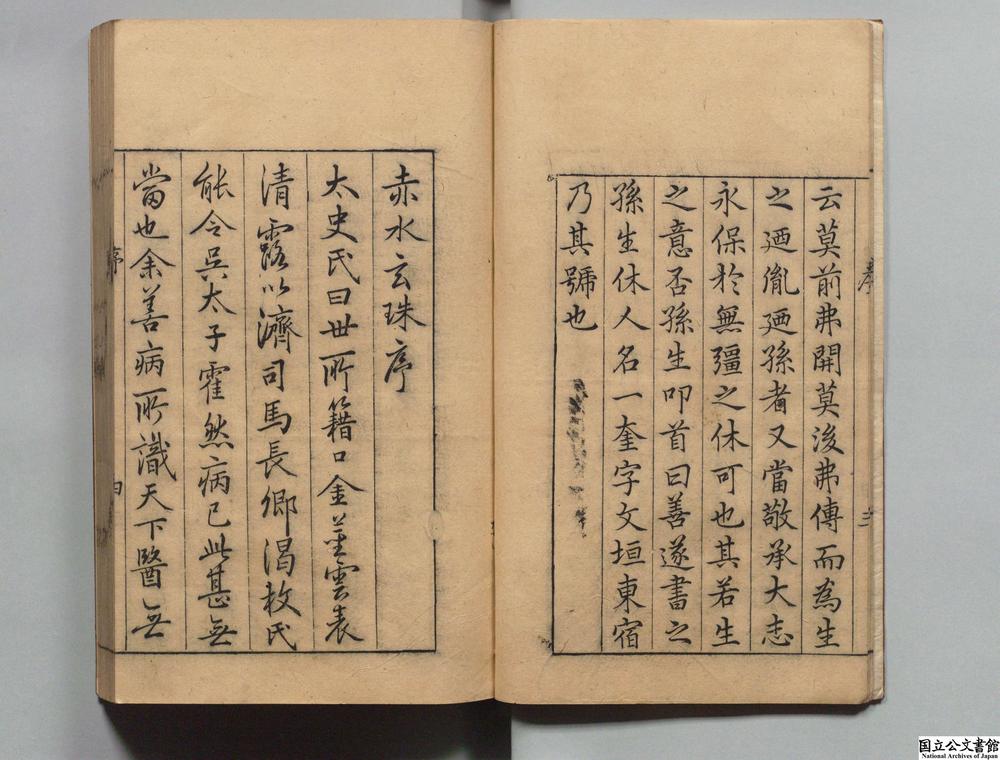 云莫前弗開莫後弗傳而為生
之廼胤廼孫者又當敬承大志
永保於無疆之休可也其若生
之意否孫生叩首曰善遂書之
孫生休人名一奎字文垣東宿
乃其號也
赤水玄珠序
太史氏曰世所籍口金莖雲表
清露以濟司馬長卿渴枚氏
能令吳太子霍然病已此甚無
當也余善病所識天下醫無
序
国立公文書館
National Archives of Japan